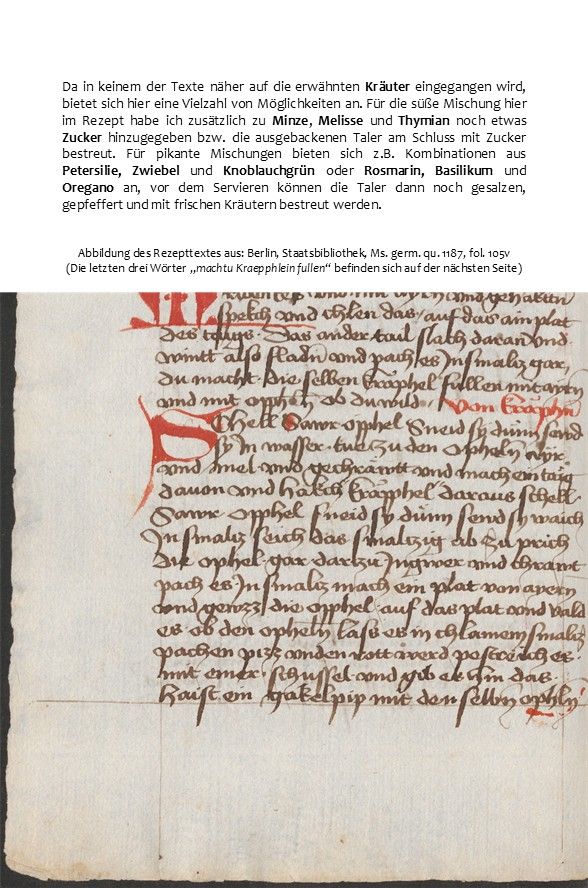 Da in keinem der Texte näher auf die erwähnten Kräuter eingegangen wird,
bietet sich hier eine Vielzahl von Möglichkeiten an. Für die süße Mischung hier
im Rezept habe ich zusätzlich zu Minze, Melisse und Thymian noch etwas
Zucker hinzugegeben bzw. die ausgebackenen Taler am Schluss mit Zucker
bestreut. Für pikante Mischungen bieten sich z.B. Kombinationen aus
Petersilie, Zwiebel und Knoblauchgrün oder Rosmarin, Basilikum und
Oregano an, vor dem Servieren können die Taler dann noch gesalzen,
gepfeffert und mit frischen Kräutern bestreut werden.
Abbildung des Rezepttextes aus: Berlin, Staatsbibliothek, Ms. germ. qu. 1187, fol. 105v
(Die letzten drei Wörter „machtu Kraepphlein fullen“ befinden sich auf der nächsten Seite)
spekch vnd chlen das auf das ain plat
des taigs. Das ander tail slach daran vnd
wintt also fladn vnd pach es In smalz gar
du macht die selben kraphel fullen mit ayrn
vnd mit opheln ob du wild von kraphn
Schell Sawr opphel Sneid sy dünn send
sy In wasser tue zu den opheln ayr
vnd mel vnd gechräwtt vnd mach ein taig
dauon vnd hakch kräpphel daraus schell
Sawr opphel sneid sy dünn send sy waich
In smalz seich das smalz ab zu prich
die ophel gar dartzu Ingwer vnd chrawt
pach es In smalz mach ein plat von ayern
vnd gewzz die opphel auf das plat vnd wald
es ob den opheln lass es in chlainem smalz
pachen pizz vnden rott werd pestreich es
mit einer schussel vnd gib es hin das
haist ein gakelpip mit den selbn ophln